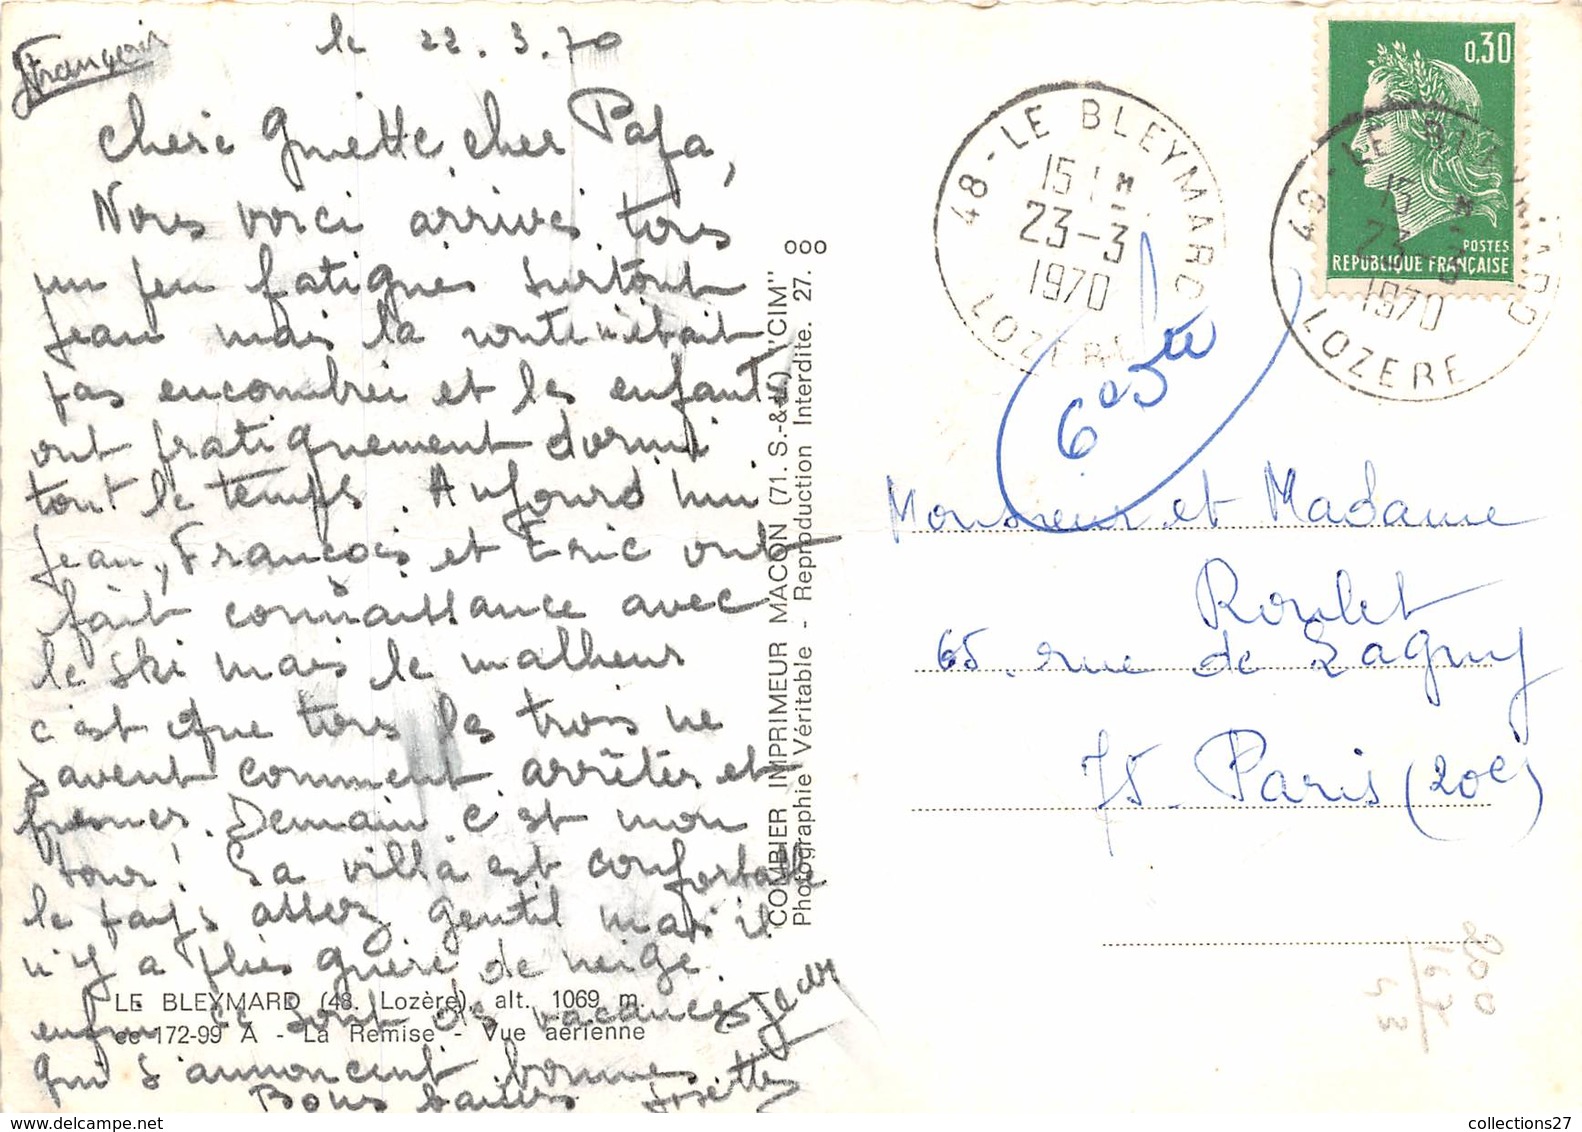 François
le 22.3.70
Chère Guiette cher Papa,
Nous voici arrivés tous
un peu fatigués surtout
Jean mais la route n'était
pas encombrée et les enfants
ont pratiquement dormi
tout le temps. Aujourd'hui
Jean, François et Eric ont
fait connaissance avec
le ski mais le malheur
c'est que tous les trois ne
savent comment arrêter et
freiner. Demain c'est mon
tour ! La villa est confortable
le pays assez gentil mais il
n'y a plus guère de neige.
enfin ce sont des vacances
qui s'annoncent bonnes
Bons baisers Josette
Jean
LE BLEYMARD (48. Lozère), alt. 1069 m.
172-99 A - La Remise - Vue aérienne
COMBIER IMPRIMEUR MACON (71. S.-&-L.) "CIM"
Photographie Véritable - Reproduction Interdite. 27. ooo
48 - LE BLEYMARD
15
23-3
1970
LOZERE
0,30
POSTES
REPUBLIQUE FRANÇAISE
48 - LE BLEYMARD
15
23-3
1970
LOZERE
Monsieur et Madame
Roulet
65, rue de Lagny
75 - Paris (20e)
200
167
43
collections27